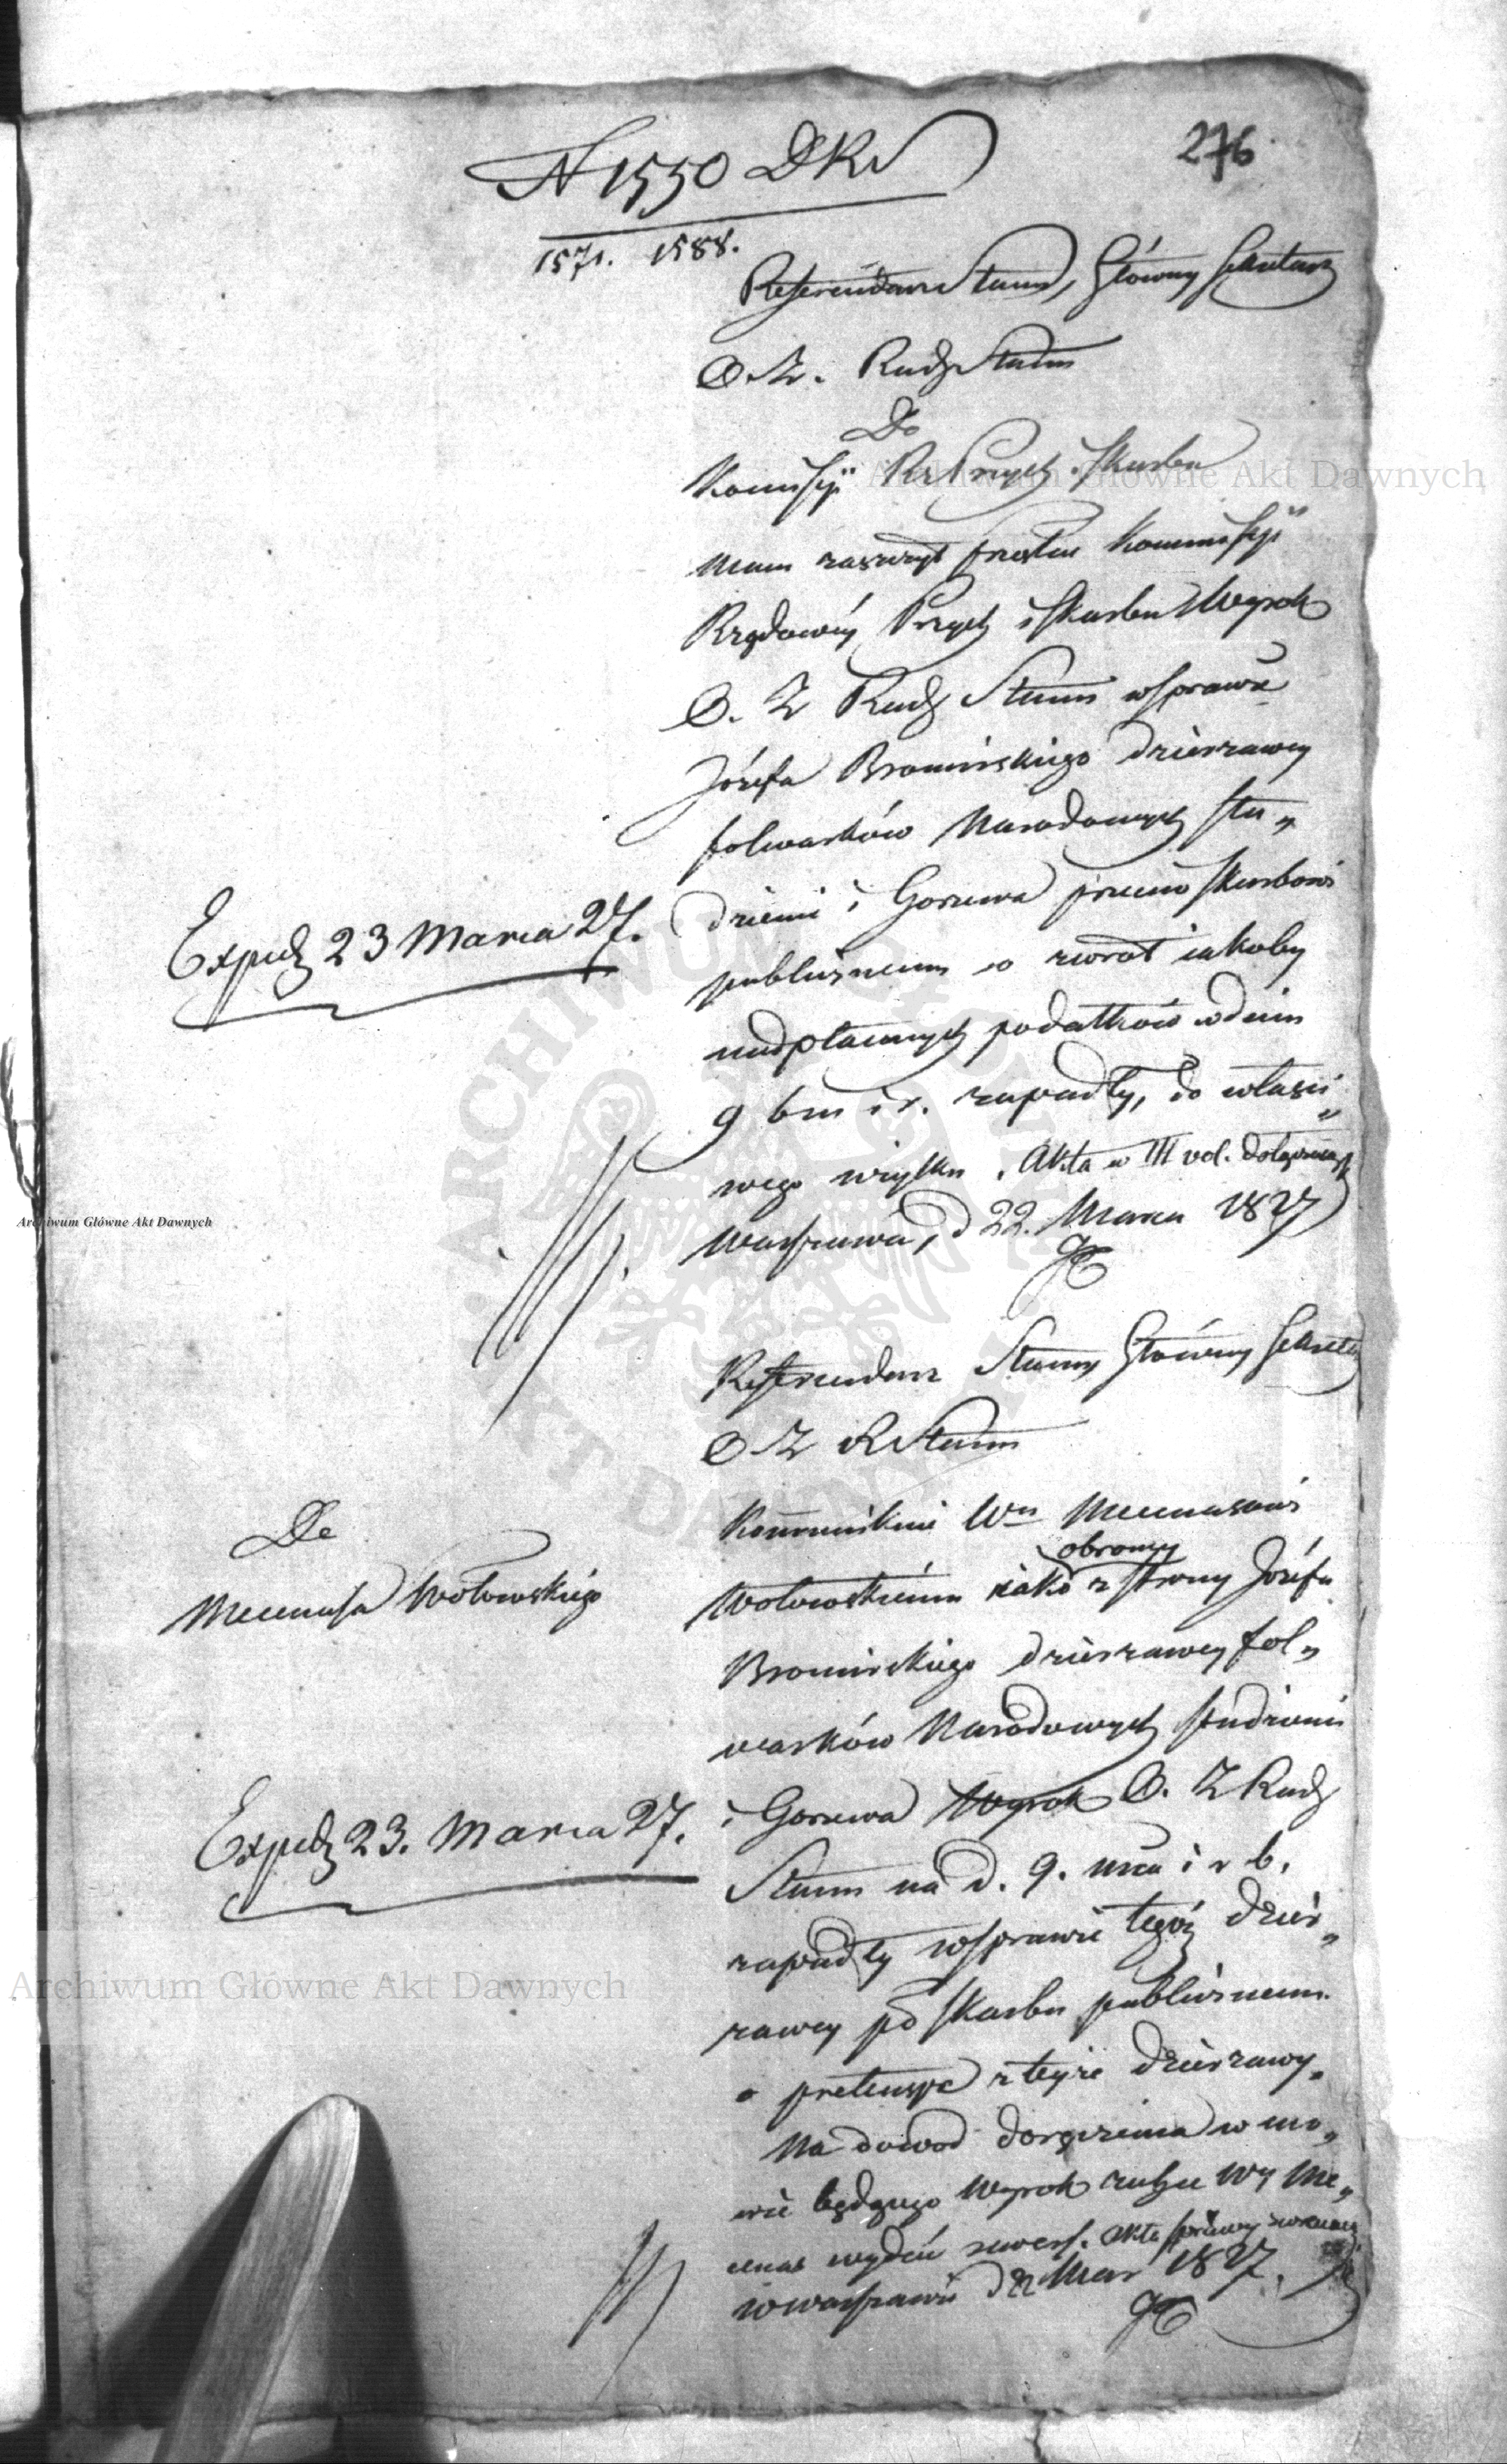 276
N 1550 DKr
1571. 1588.
Referendarz Stanu, Główny Sekretarz
O. Z. Rady Stanu
Do
Komissyi Rz Przych i Skarbu
Mam zaszczyt przesłać Kommissyi
Rządowey Przych i Skarbu Wyrok
O. Z Rady Stanu w sprawie
Józefa Bromirskiego dzierzawcy
folwarków Narodowych Stu„
dzieni i Gorzewa przeciw Skarbowi
publicznemu o zwrot iakoby
nadpłaconych podatków w dniu
9 bm i r. zapadły, do właści„
wego użytku. Akta w III vol. dołączaiąc
Warszawa, d 22. Marca 1827
Exped 23 Marca 27.
Referendarz Stanu Główny Sekretarz
O Z R Stanu
Do
Mecenasa Wołowskiego
Kommunikuie Wmu Mecenasowi
Wołowskiemu iako obrońcy z strony Józefa
Bromirskiego dzierzawcy fol„
warków Narodowych Studzieni
i Gorzewa Wyrok O. Z Rady
Stanu na d. 9. mca i r b.
zapadły w sprawie tegoż dzier„
zawcy pko Skarbu publicznemu
o pretensye z teyże dzierzawy.
Na dowód doręczenia w mo„
wie będącego Wyroku zechce Wy Me„
cenas wydać rewers. Akta sprawy zwracaiąc
w Warszawie d 22 Mar 1827.
Exped 23. Marca 27.
Archiwum Główne Akt Dawnych
Archiwum Główne Akt Dawnych
Archiwum Główne Akt Dawnych